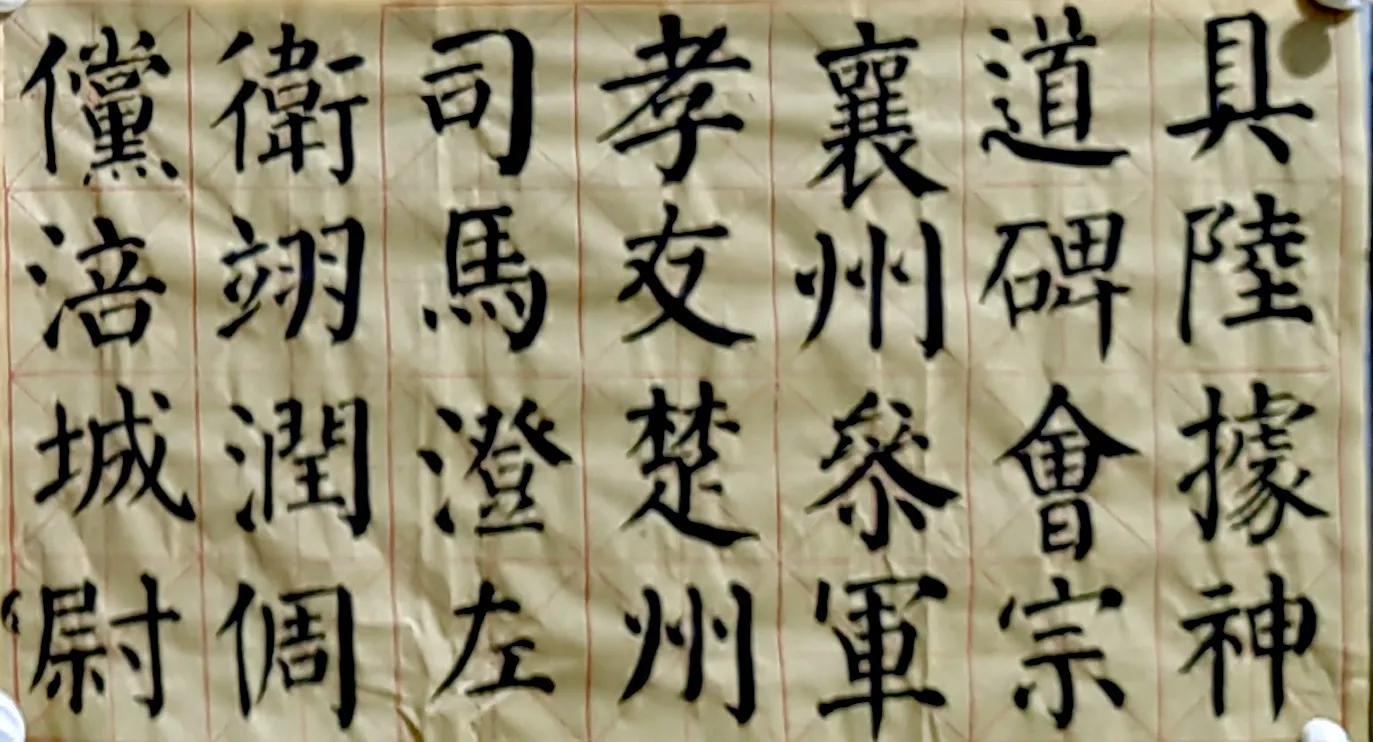 具陸據神
道碑會宗
襄州參軍
孝友楚州
司馬澄左
衛翊潤倜
儻涪城尉